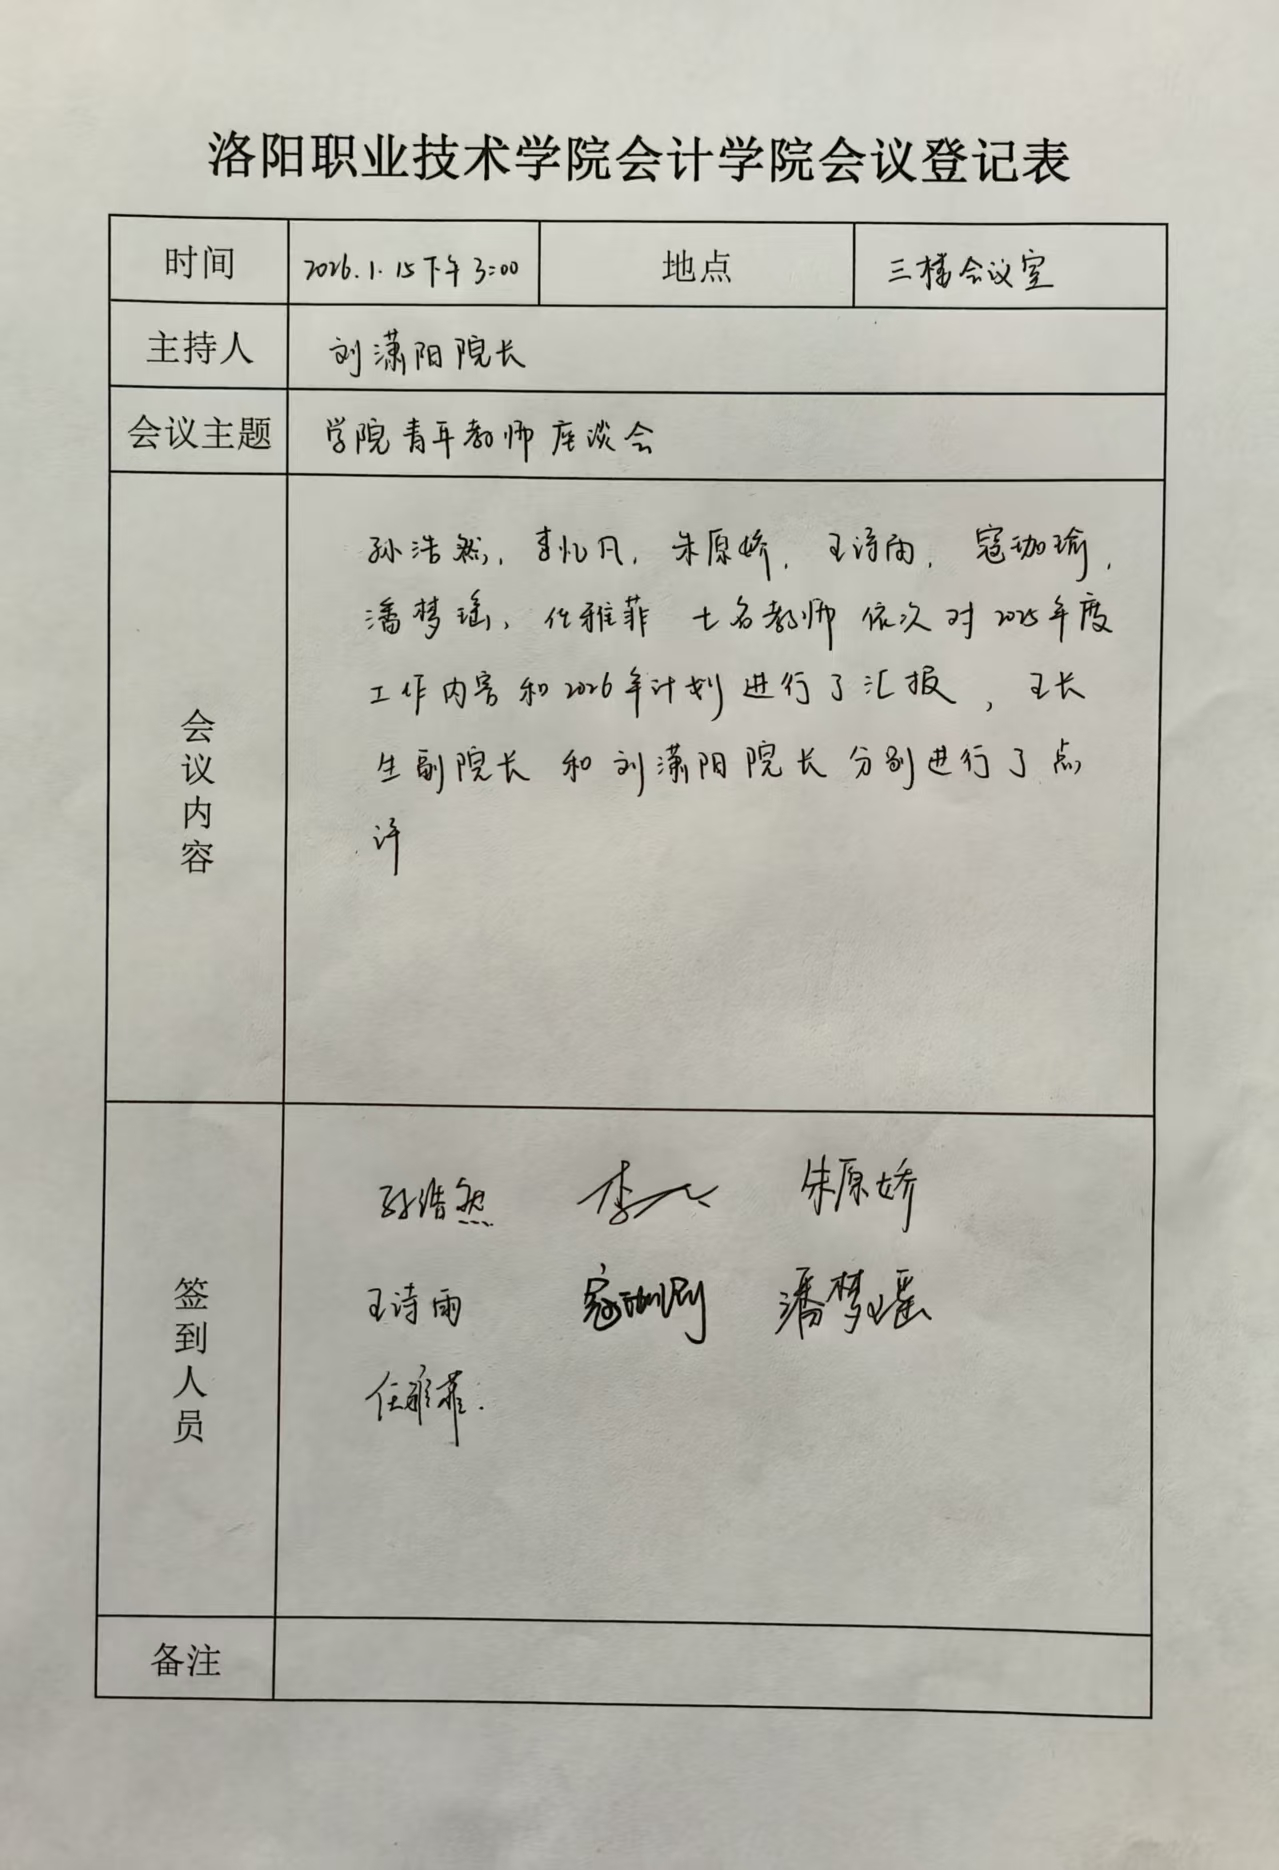 洛阳职业技术学院会计学院会议登记表
时间 2026.1.15下午3:00 地点 三楼会议室
主持人 刘潇阳院长
会议主题 学院青年教师座谈会
会议内容
孙浩然,李忆凡,朱原娇,王诗雨,寇珈瑜,
潘梦瑶,任雅菲 七名教师 依次对2025年度
工作内容和2026年计划进行了汇报,王长
生副院长和刘潇阳院长分别进行了点
评
签到人员
孙浩然 李 朱原娇
王诗雨 寇珈瑜 潘梦瑶
任雅菲.
备注